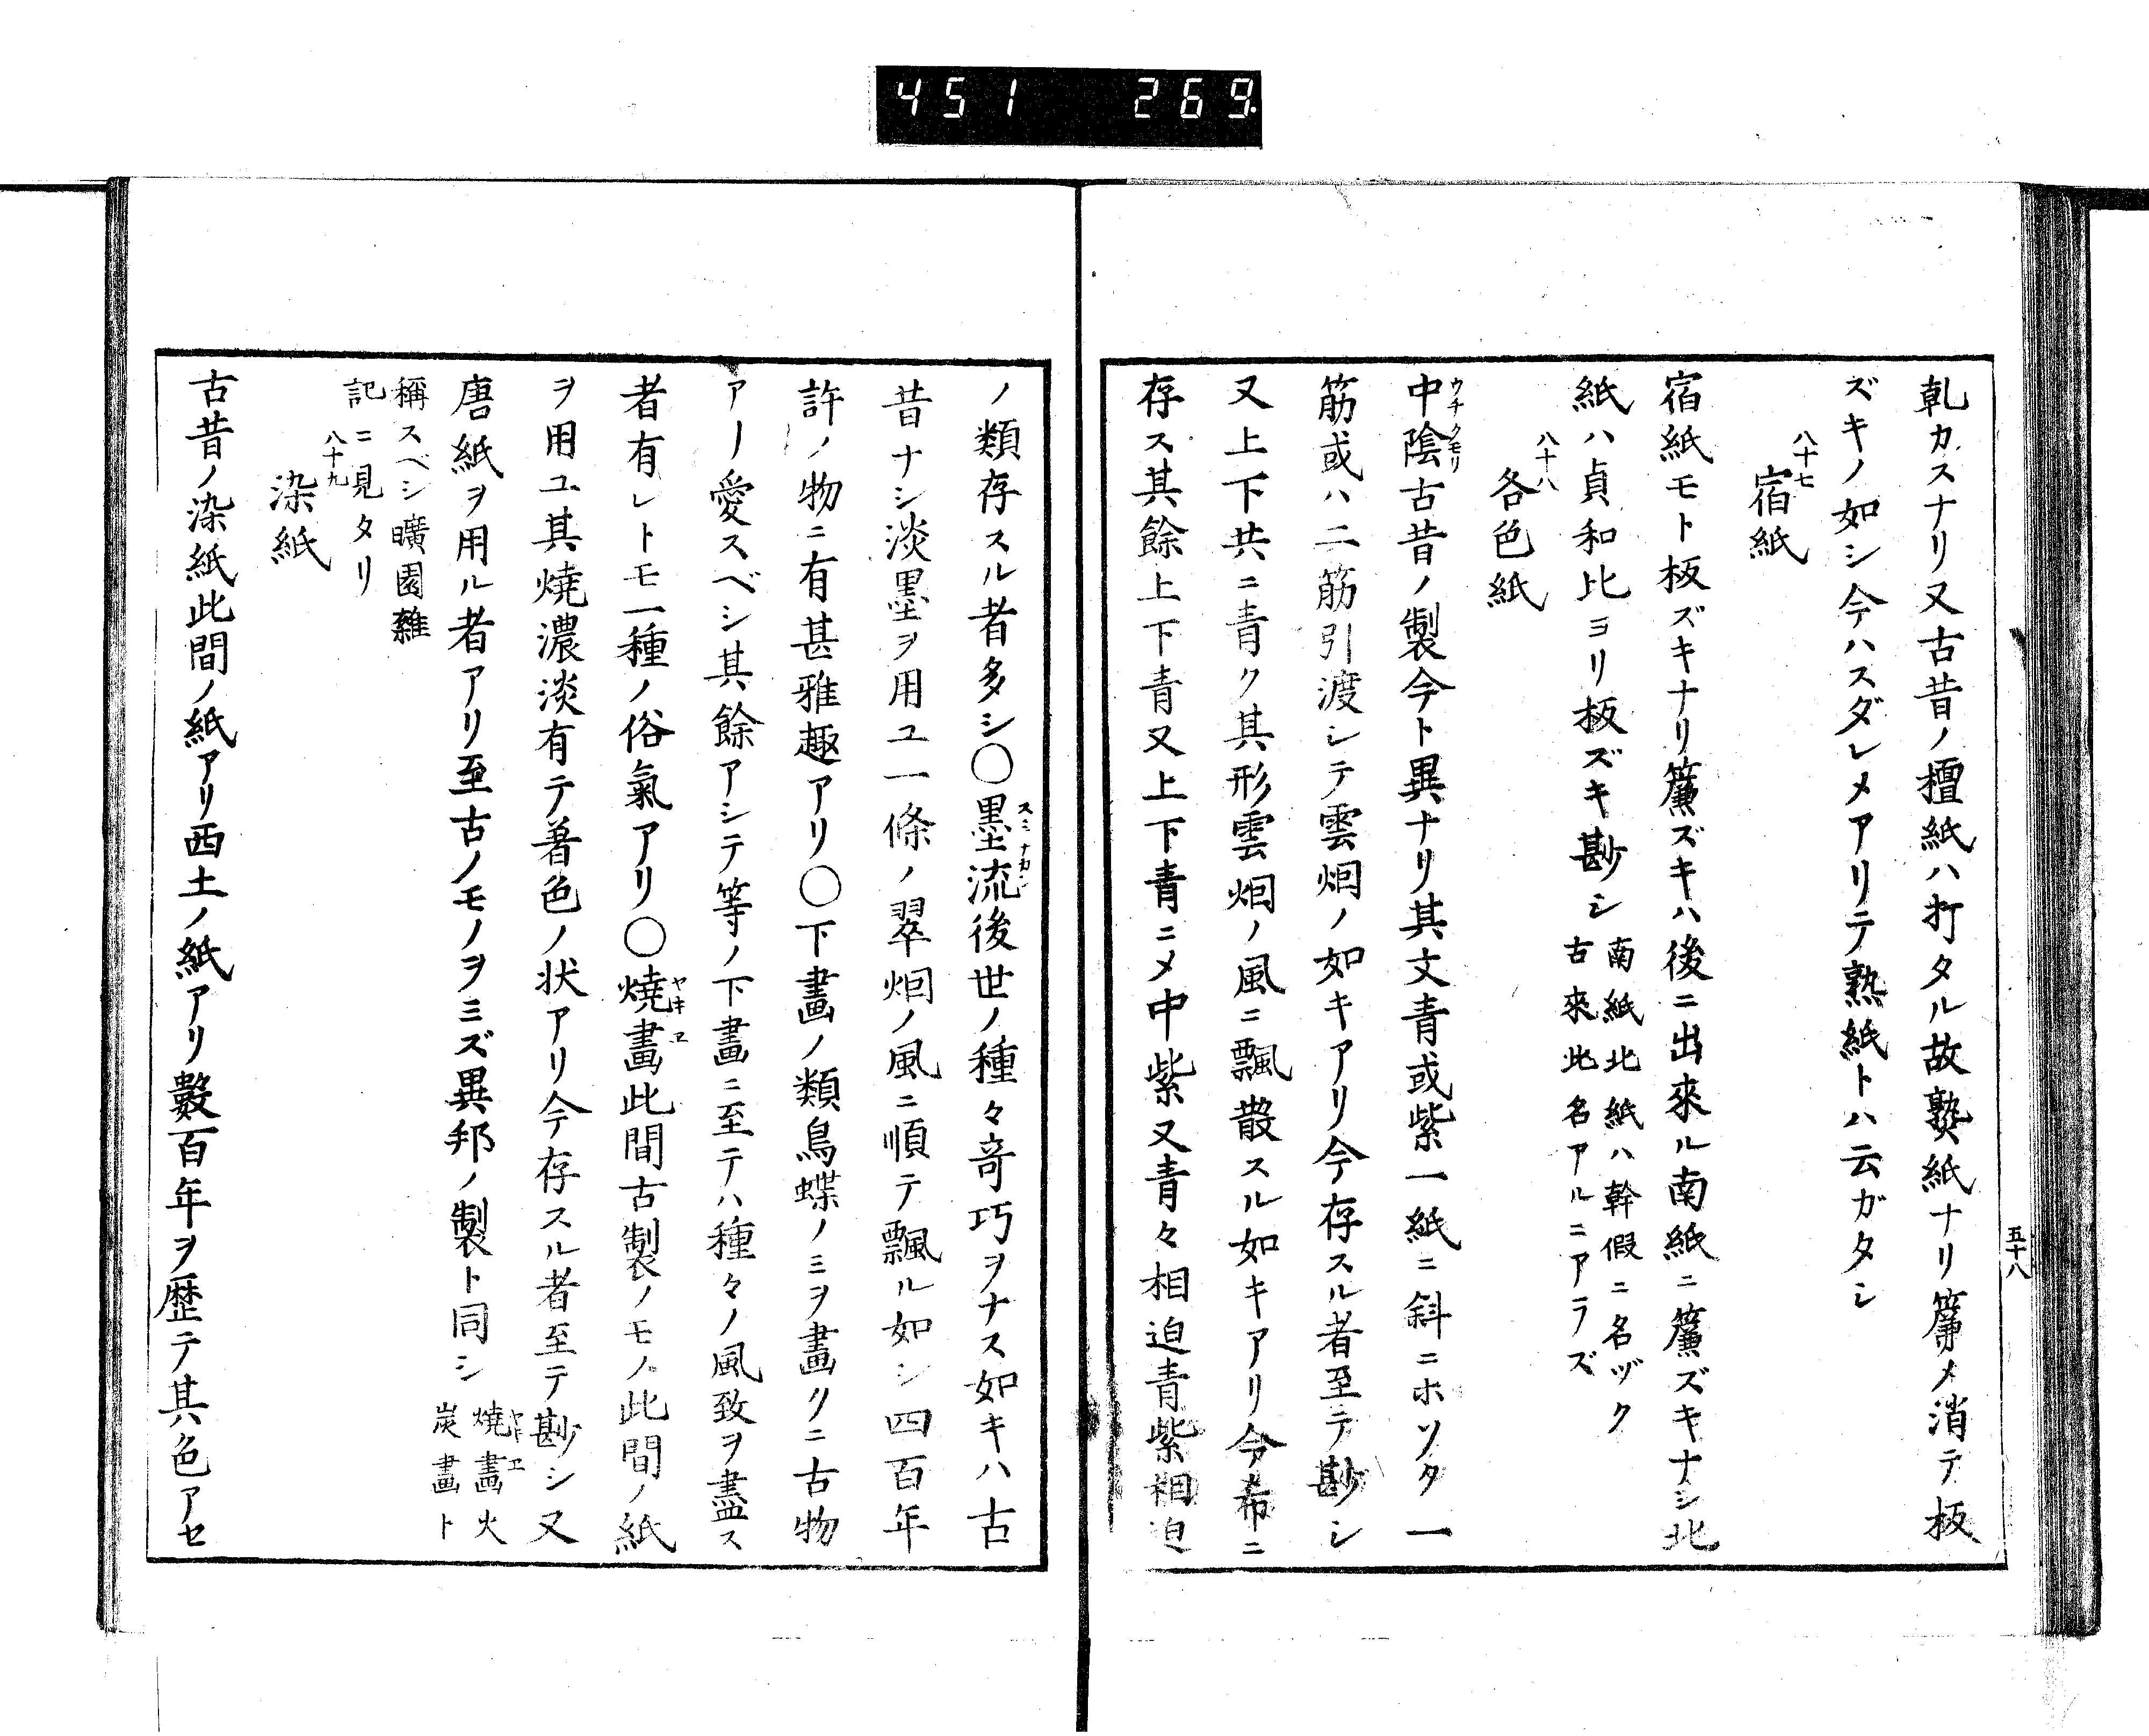 451 269
五十八
乹カスナリ又古昔ノ檀紙ハ打タル故熟紙ナリ簾メ消テ板
ズキノ如シ今ハスダレメアリテ熟紙トハ云ガタシ
八十七
宿紙
宿紙モト板ズキナリ簾ズキハ後ニ出來ル南紙ニ簾ズキナシ北
紙ハ貞和比ヨリ板ズキ尠シ 南紙北紙ハ幹假ニ名ヅク
古來此名アルニアラズ
八十八
各色紙
中陰古昔ノ製今ト異ナリ其文青或紫一紙ニ斜ニホソタ一
ウチクモリ
筋或ハ二筋引渡シテ雲烟ノ如キアリ今存スル者至テ尠シ
又上下共ニ青ク其形雲烟ノ風ニ飄散スル如キアリ今希ニ
存ス其餘上下青又上下青ニメ中紫又青々相迫青紫相迫
ノ類存スル者多シ〇墨流後世ノ種々竒巧ヲナス如キハ古
スミナカシ
昔ナシ淡墨ヲ用ユ一條ノ翠烟ノ風ニ順テ飄ル如シ四百年
許ノ物ニ有甚雅趣アリ〇下畫ノ類鳥蝶ノミヲ畫クニ古物
アー愛スベシ其餘アシテ等ノ下畫ニ至テハ種々ノ風致ヲ盡ス
者有レトモ一種ノ俗氣アリ〇燒畫此間古製ノモノ此間ノ紙
ヤキヱ
ヲ用ユ其燒濃淡有テ著色ノ状アリ今存スル者至テ尠シ又
唐紙ヲ用ル者アリ至古ノモノヲミズ異邦ノ製ト同シ 燒畫火
ヤキエ
炭畫ト
稱スベシ曠園雜
記ニ見タリ
八十九
染紙
古昔ノ染紙此間ノ紙アリ西土ノ紙アリ數百年ヲ歴テ其色アセ